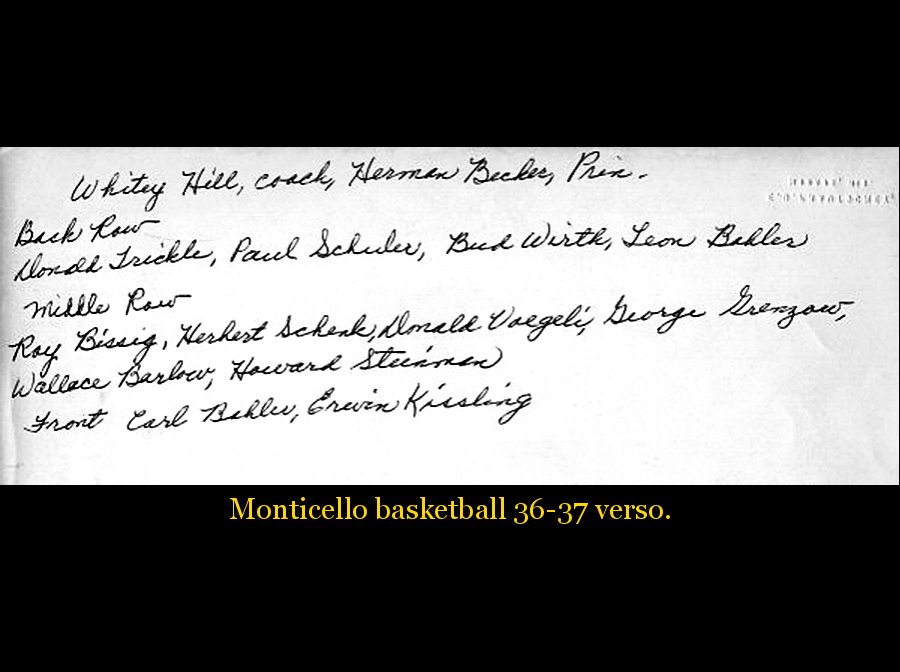 Whitey Hill, coach, Herman Becker, Prin.
Back Row
Donald Trickle, Paul Schuler, Bud Wirth, Leon Bahler
Middle Row
Roy Bissig, Herbert Schenk, Donald Voegeli, George Grenzow,
Wallace Barlow, Howard Steinman
Front Carl Bahler, Erwin Kissling
Monticello basketball 36-37 verso.